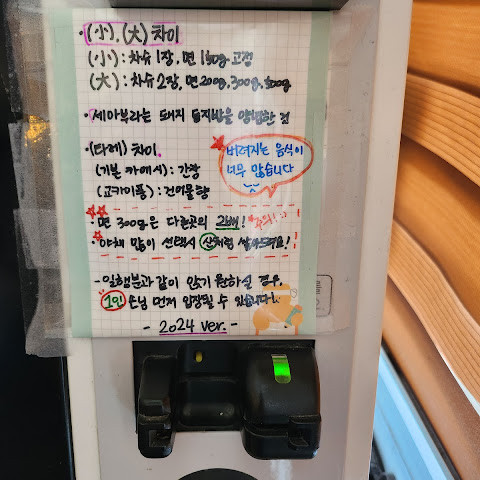 · (小), (大) 차이
(小) : 차슈 1장, 면 150g 고정
(大) : 차슈 2장, 면 200g, 300g, 400g
· 세아부라는 돼지 등지방을 양념한 것
· (타레) 차이.
(기본 카에시) : 간장
(고카이톤) : 건어물향
버려지는 음식이
너무 많습니다
· 면 300g은 다른곳의 2배! 주의!
· 야채 많이 선택시 산처럼 쌓아드려요!
- 일행분과 같이 앉기 원하실 경우,
1인 손님 먼저 입장될 수 있습니다!
- 2024 ver. -